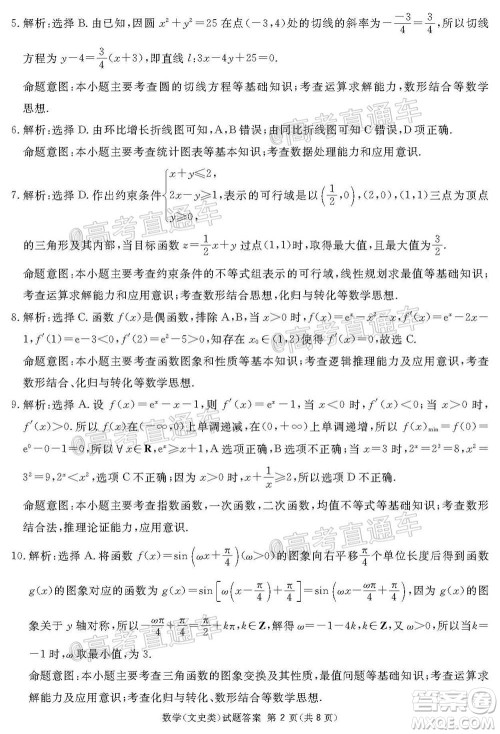 5. 解析:选择 B. 由已知,因圆 x²+y²=25 在点(-3,4)处的切线的斜率为 -\frac{-3}{4}=\frac{3}{4},所以切线
方程为 y-4=\frac{3}{4}(x+3),即直线 l:3x-4y+25=0.
命题意图:本小题主要考查圆的切线方程等基础知识;考查运算求解能力,数形结合等数学
思想.
6. 解析:选择 D. 由环比增长折线图可知,A,B 错误;由同比折线图可知 C 错误,D 项正确.
命题意图:本小题主要考查统计图表等基本知识;考查数据处理能力和应用意识.
7. 解析:选择 D. 作出约束条件{x+y≤2, 2x-y≥1, y≥0,表示的可行域是以(\frac{1}{2},0),(2,0),(1,1)三点为顶点
的三角形及其内部,当目标函数 z=\frac{1}{2}x+y 过点(1,1)时,取得最大值,且最大值为\frac{3}{2}.
命题意图:本小题主要考查约束条件的不等式组表示的可行域,线性规划求最值等基础知
识;考查运算求解能力和应用意识;考查数形结合,化归与转化等数学思想.
8. 解析:选择 C. 函数 f(x)是偶函数,排除 A,B,当 x>0 时,f(x)=eˣ-x²-x,f′(x)=eˣ-2x-
1,f′(1)=e-3<0,f′(2)=e²-5>0,如存在 x₀∈(1,2)使得 f′(x₀)=0,故选 C.
命题意图:本小题主要考查函数图象和性质等基本知识;考查逻辑推理能力及应用意识;
考查数形结合、化归与转化等数学思想.
9. 解析:选择 A. 设 f(x)=eˣ-x-1,则 f′(x)=eˣ-1,当 x<0 时,f′(x)<0,当 x>0 时,
f′(x)>0,所以 f(x)在(-∞,0)上单调递减,在(0,+∞)上单调递增,所以 f(x)ₘᵢₙ=f(0)=
e⁰-0-1=0,所以 ∀x∈R,eˣ≥x+1,A 选项正确,B 选项不正确;当 x=3 时,2ˣ=2³=8,x²=
3²=9,2ˣ<x²,选项 C 不正确;因为 x>0 时,x+\frac{1}{x}≥2,所以选项 D 不正确.
命题意图:本小题主要考查指数函数,一次函数,二次函数,均值不等式等基础知识;考查
综合法,推理论证能力,应用意识.
10. 解析:选择 A. 将函数 f(x)=sin(ωx+\frac{π}{4})(ω>0)的图象向右平移\frac{π}{4}个单位长度后,得到函数
g(x)的图象对应的函数为 g(x)=sin[ω(x-\frac{π}{4})+\frac{π}{4}]=sin(ωx-\frac{ωπ}{4}+\frac{π}{4}),因为 g(x)的图
象关于 y 轴对称,所以-\frac{ωπ}{4}+\frac{π}{4}=\frac{π}{2}+kπ,k∈Z,解得,ω=-1-4k,k∈Z,因为 ω>0,所以当
k=-1 时,ω 取最小值,为 3.
命题意图:本小题主要考查三角函数的图象变换及其性质,最值等基础知识;考查运算求
解能力;考查数形结合等数学思想,应用意识.
数学(文史类)试题答案 第 2 页(共 8 页)
@高考直通车